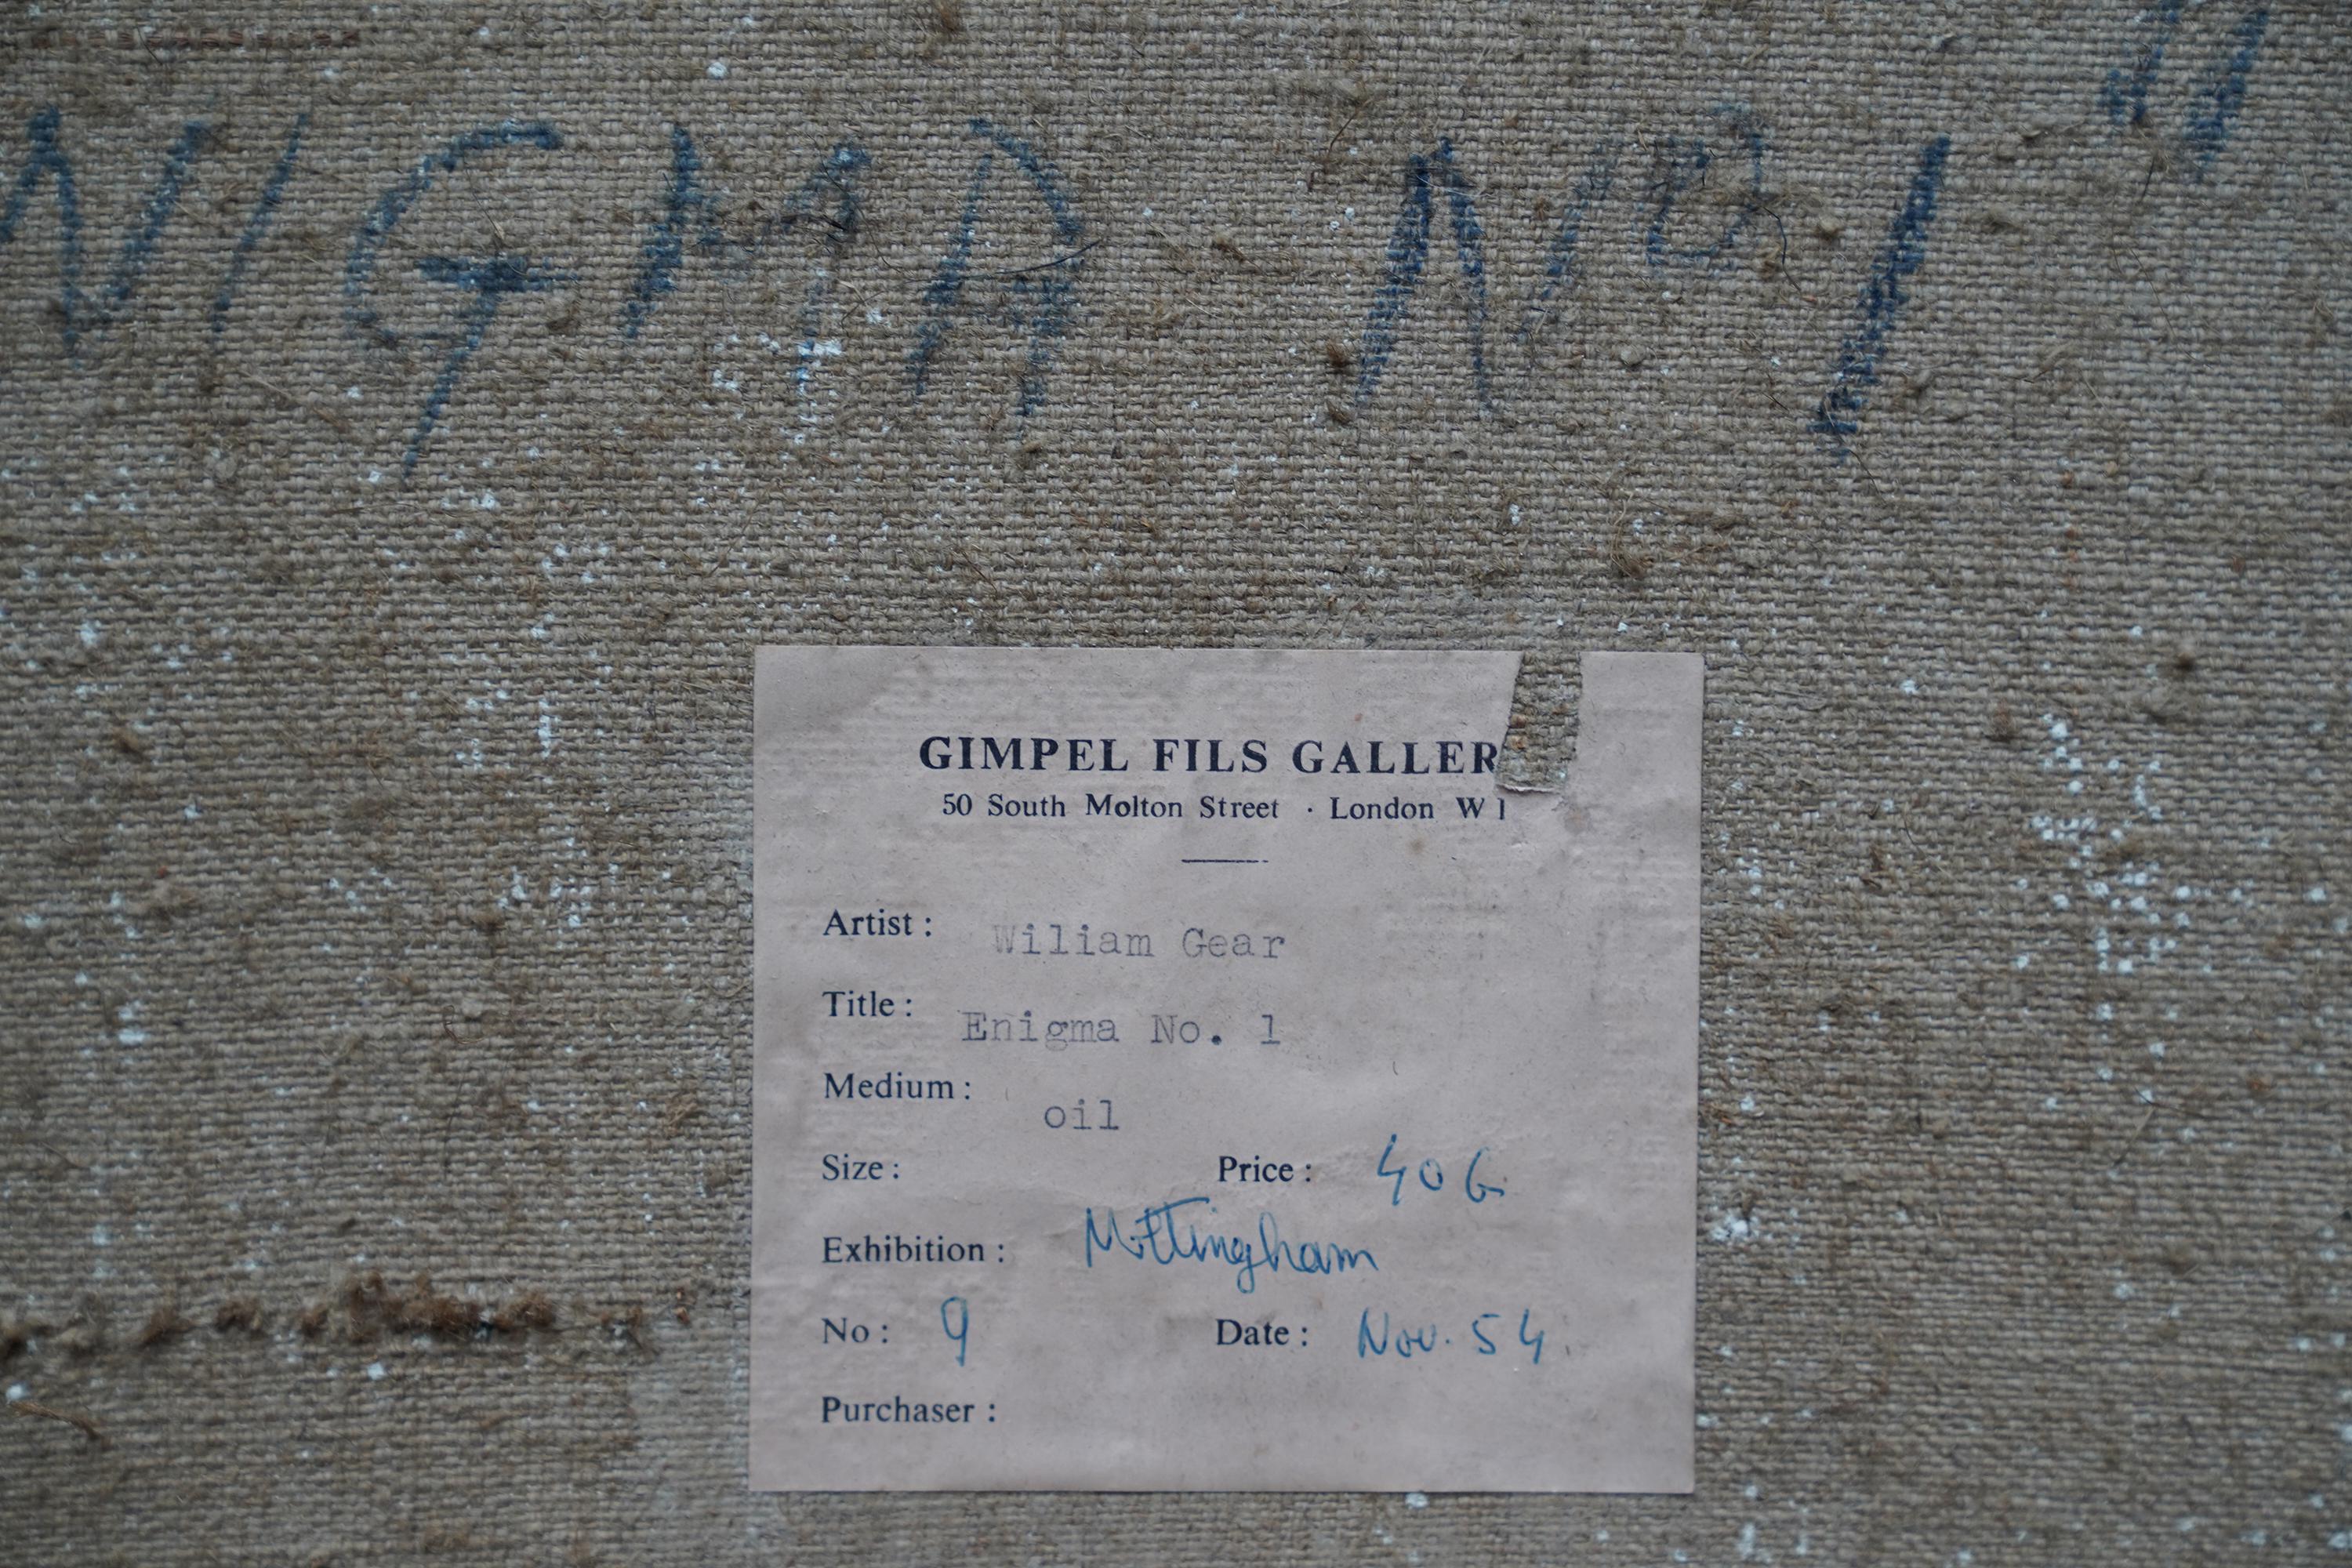 NIGMA Nº1"
GIMPEL FILS GALLER
50 South Molton Street · London W 1
Artist: Wiliam Gear
Title: Enigma No. 1
Medium: oil
Size: Price: 40 G
Exhibition: Nottingham
No: 9 Date: Nov. 54
Purchaser: